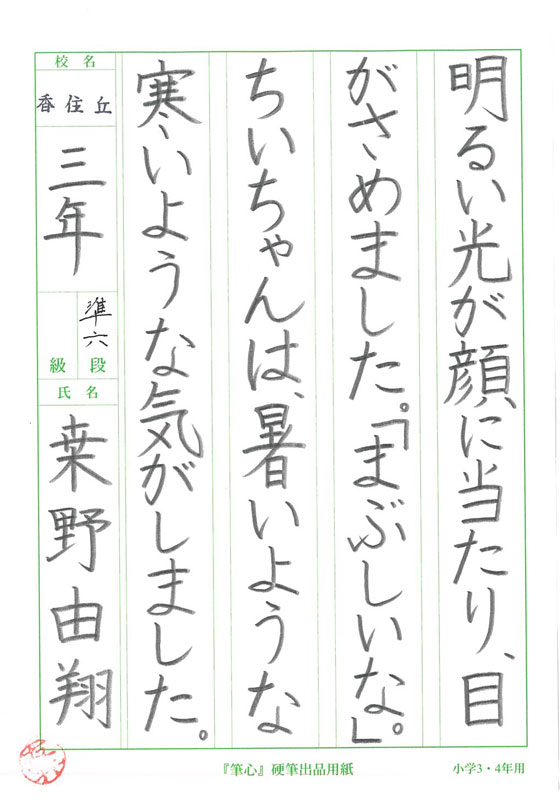 明るい光が顔に当たり、目
がさめました。「まぶしいな」。
ちいちゃんは、暑いような
寒いような気がしました。
校名
香住丘
三年
準六
級段
氏名
桒野由翔
『筆心』硬筆出品用紙
小学3・4年用